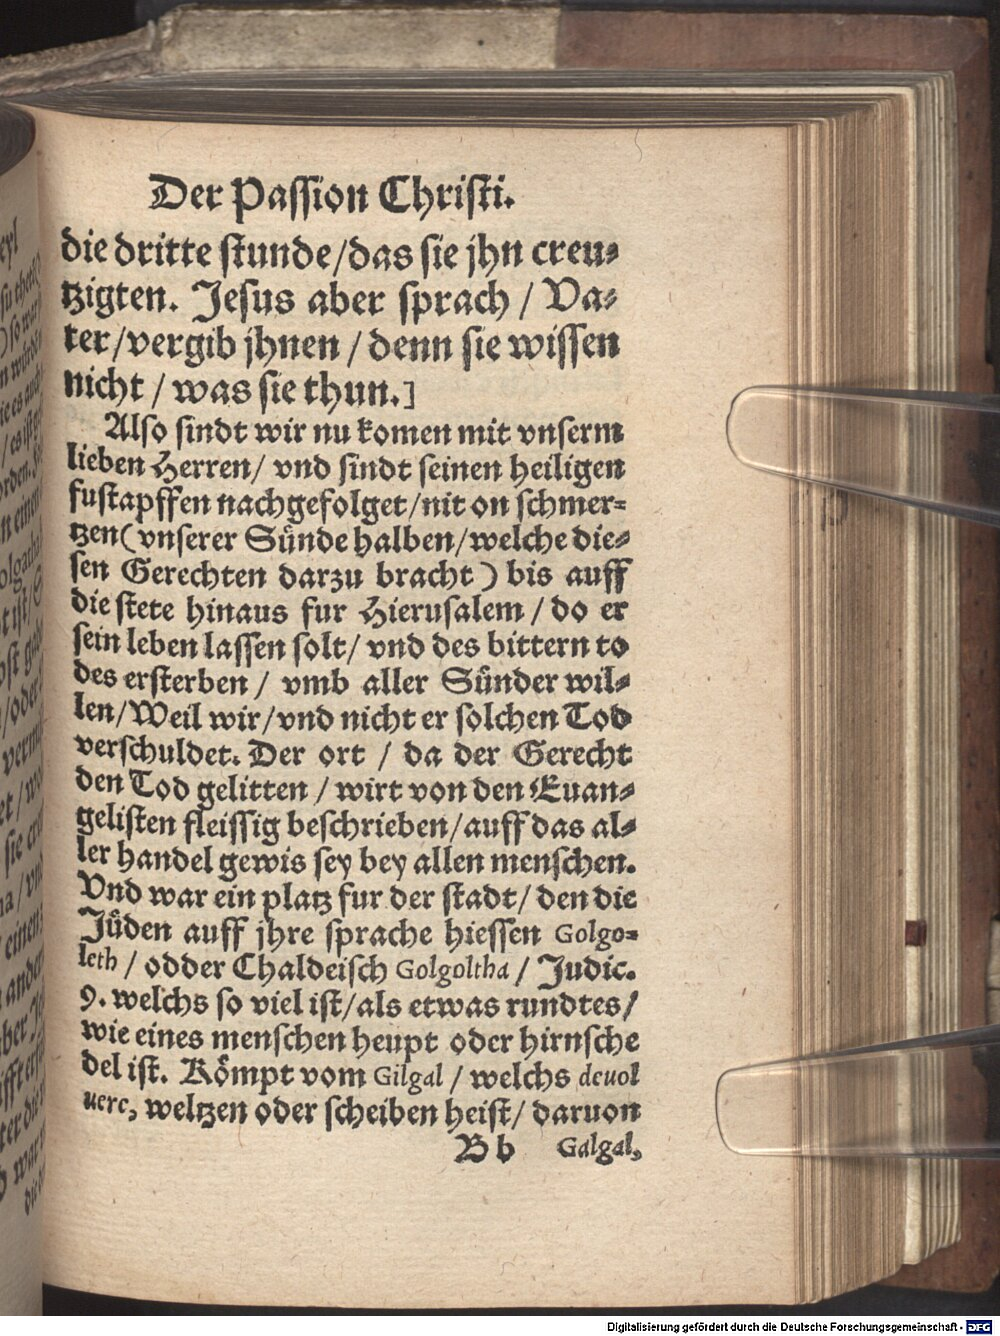 Der Passion Christi.
die dritte stunde/das sie jhn creu⸗
tzigten. Jesus aber sprach / Va⸗
ter/vergib jhnen / denn sie wissen
nicht / was sie thun.]
Also sindt wir nu komen mit vnserm
lieben Herren/ vnd sindt seinen heiligen
fustapffen nachgefolget/nit on schmer⸗
tzen(vnserer Sünde halben/welche die⸗
sen Gerechten darzu bracht) bis auff
die stete hinaus fur Hierusalem / do er
sein leben lassen solt/ vnd des bittern to
des ersterben / vmb aller Sünder wil⸗
len/Weil wir/vnd nicht er solchen Tod
verschuldet. Der ort / da der Gerecht
den Tod gelitten / wirt von den Euan⸗
gelisten fleissig beschrieben/auff das al⸗
ler handel gewis sey bey allen menschen.
Vnd war ein platz fur der stadt/ den die
Jüden auff jhre sprache hiessen Golgo⸗
leth / odder Chaldeisch Golgoltha / Judic.
9. welchs so viel ist/als etwas rundtes/
wie eines menschen heupt oder hirnsche
del ist. Kömpt vom Gilgal / welchs deuol
uere, weltzen oder scheiben heist/ daruon
B b Galgal,
Digitalisierung gefördert durch die Deutsche Forschungsgemeinschaft - DFG